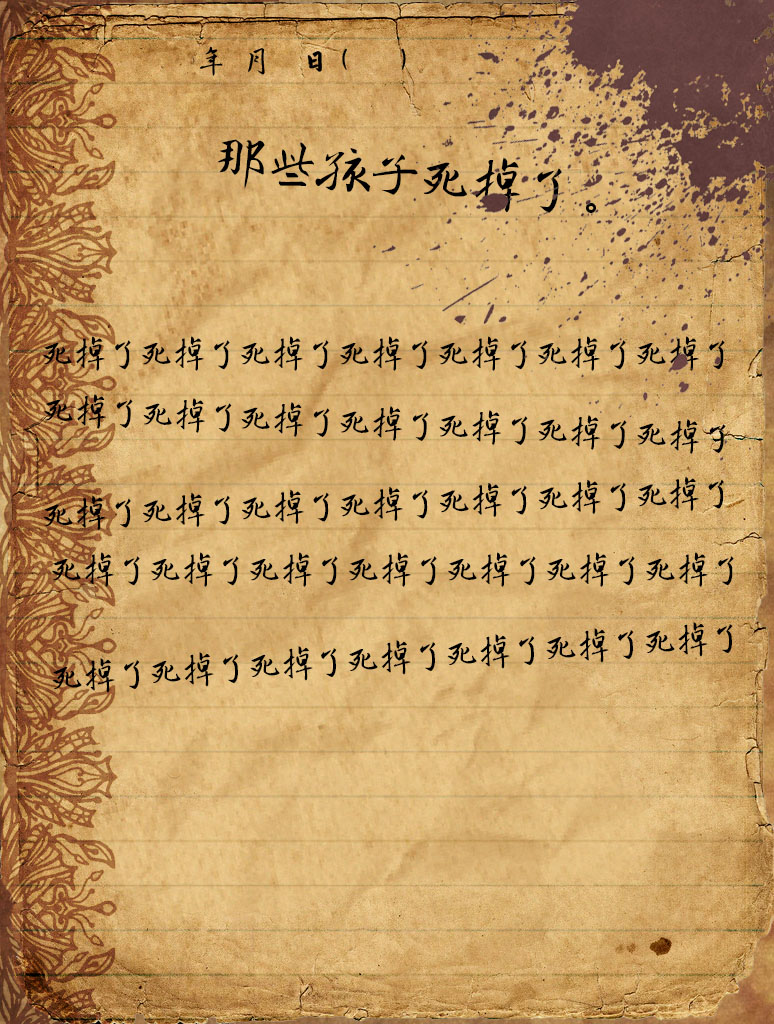 年 月 日( )
那些孩子死掉了。
死掉了死掉了死掉了死掉了死掉了死掉了死掉了
死掉了死掉了死掉了死掉了死掉了死掉了死掉了
死掉了死掉了死掉了死掉了死掉了死掉了死掉了
死掉了死掉了死掉了死掉了死掉了死掉了死掉了
死掉了死掉了死掉了死掉了死掉了死掉了死掉了